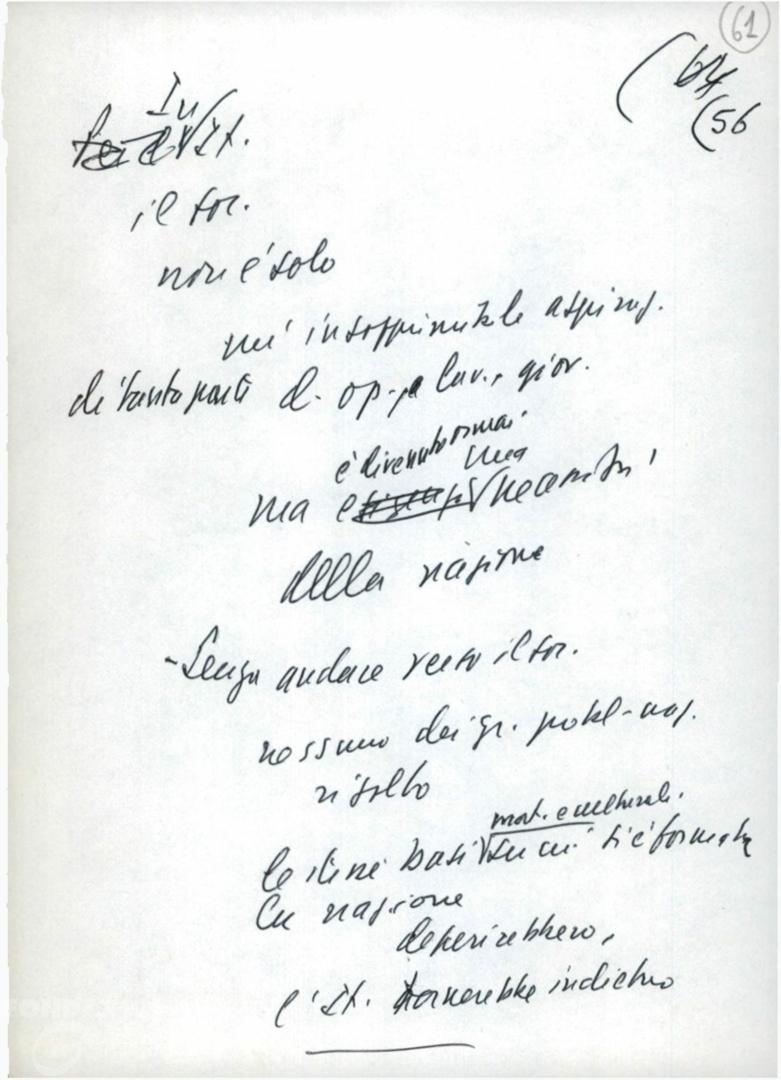 61
(64
(56
In
It.
il soc.
non è solo
un' insopprimibile aspiraz.
di tanta parte di op., lav., giov.
è divenuto ormai
una
ma necessità
della nazione
- Senza andare verso il soc.
nessuno dei gr. probl. naz.
risolto
mat. e culturali.
le stesse basi su cui si è formata
la nazione
deperirebbero,
l'It. tornerebbe indietro